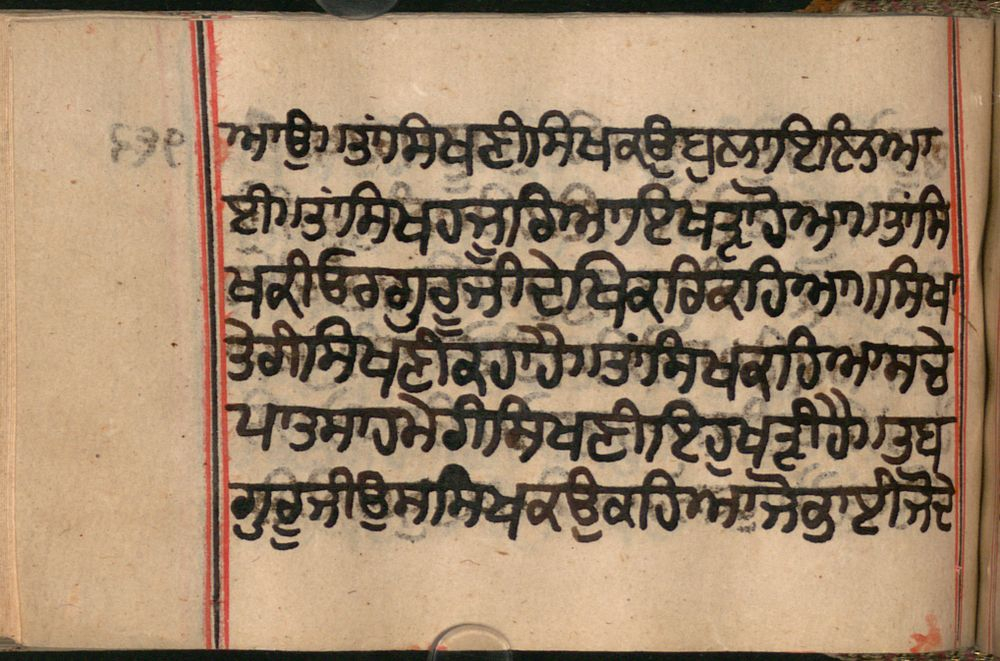 ਆਉ॥ਤਾਂਸਿਖਣੀਸਿਖਕਉਬੁਲਾਇਲਿਆ
ਈ॥ਤਾਂਸਿਖਹਜੂਰਿਆਇਖੜਾਹੋਆ॥ਤਾਂਸਿ
ਖਕੀਓਰਗੁਰੂਜੀਦੇਖਿਕਰਿਕਹਿਆ॥ਸਿਖਾ
ਤੇਰੀਸਿਖਣੀਕਹਾਹੈ॥ਤਾਂਸਿਖਕਹਿਆਸਚੇ
ਪਾਤਸਾਹਮੇਰੀਸਿਖਣੀਇਹੁਖੜੀਹੈ॥ਤਬ
ਗੁਰੂਜੀਉਸਸਿਖਕਉਕਹਿਆਜੋਭਾਈਜੋਦੇ